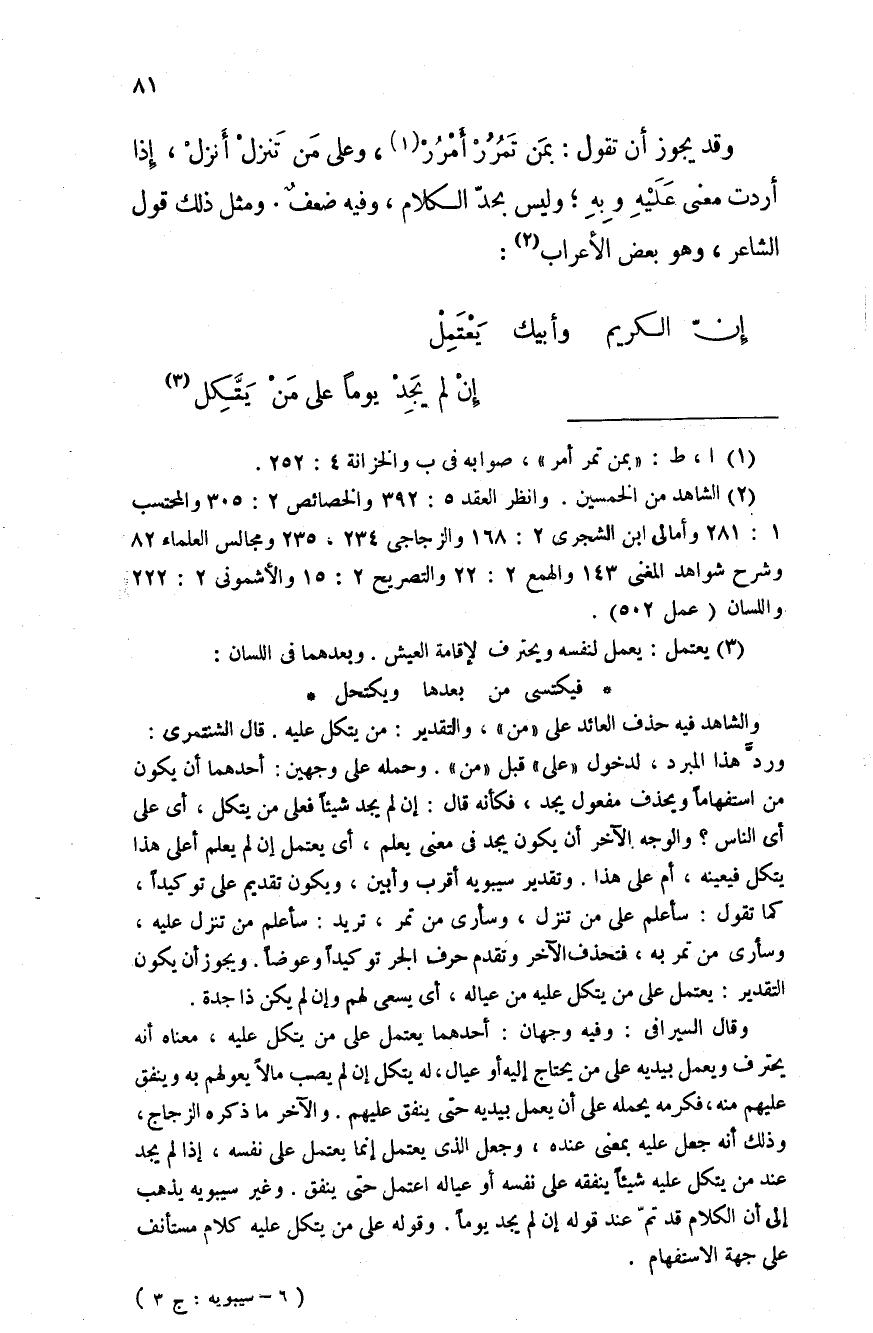 ٨١
وقد يجوز أن تقول : بمَن تَمْرُرْ أَمْرُرْ(١) ، وعلى مَن تَنزلْ أَنزلْ ، إِذا
أردت معنى عَلَيْهِ وبِهِ ؛ وليس بحدّ الكلام ، وفيه ضعفٌ . ومثل ذلك قول
الشاعر ، وهو بعض الأعراب(٢) :
إِنّ الكريم وأبيك يَعْتَمِلْ
إِنْ لم يَجِدْ يوماً على مَنْ يَتَّكِل(٣)
(١) ا ، ط : «بمن تمر أمر» ، صوابه فى ب والخزانة ٤ : ٢٥٢ .
(٢) الشاهد من الخمسين . وانظر العقد ٥ : ٣٩٢ والخصائص ٢ : ٣٠٥ والمحتسب
١ : ٢٨١ وأمالى ابن الشجرى ٢ : ١٦٨ والزجاجى ٢٣٤ ، ٢٣٥ ومجالس العلماء ٨٢
وشرح شواهد المغنى ١٤٣ والهمع ٢ : ٢٢ والتصريح ٢ : ١٥ والأشمونى ٢ : ٢٢٢
واللسان ( عمل ٥٠٢ ) .
(٣) يعتمل : يعمل لنفسه ويحترف لإقامة العيش . وبعدهما فى اللسان :
* فيكتسى من بعدها ويكتحل *
والشاهد فيه حذف العائد على «من» ، والتقدير : من يتكل عليه . قال الشنتمرى :
وردَّ هذا المبرد ، لدخول «على» قبل «من» . وحمله على وجهين : أحدهما أن يكون
من استفهاماً ويحذف مفعول يجد ، فكأنه قال : إن لم يجد شيئاً فعلى من يتكل ، أى على
أى الناس ؟ والوجه الآخر أن يكون يجد فى معنى يعلم ، أى يعتمل إن لم يعلم أعلى هذا
يتكل فيعينه ، أم على هذا . وتقدير سيبويه أقرب وأبين ، ويكون تقديم على توكيداً ،
كما تقول : سأعلم على من تنزل ، وسأرى من تمر ، تريد : سأعلم من تنزل عليه ،
وسأرى من تمر به ، فتحذف الآخر وتقدم حرف الجر توكيداً وعوضاً . ويجوز أن يكون
التقدير : يعتمل على من يتكل عليه من عياله ، أى يسعى لهم وإن لم يكن ذا جدة .
وقال السيرافى : وفيه وجهان : أحدهما يعتمل على من يتكل عليه ، معناه أنه
يحترف ويعمل بيديه على من يحتاج إليه أو عيال ، له يتكل إن لم يصب مالاً يعولهم به وينفق
عليهم منه ، فكرمه يحمله على أن يعمل بيديه حتى ينفق عليهم . والآخر ما ذكره الزجاج ،
وذلك أنه جعل عليه بمعنى عنده ، وجعل الذى يعتمل إنما يعتمل على نفسه ، إذا لم يجد
عند من يتكل عليه شيئاً ينفقه على نفسه أو عياله اعتمل حتى ينفق . وغير سيبويه يذهب
إلى أن الكلام قد تمّ عند قوله إن لم يجد يوماً . وقوله على من يتكل عليه كلام مستأنف
على جهة الاستفهام .
( ٦ – سيبويه : ج ٣ )